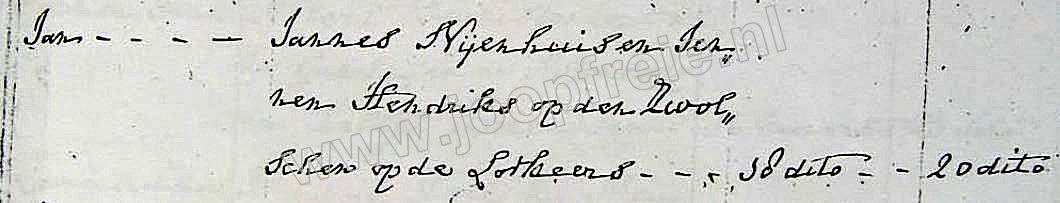 Jan - - - - Jannes Nijenhuis en Jen„
nen Hendriks op den Zwol„
schen op de Lotkeers - - 18 dito - - 20 dito
www.joopfreie.nl